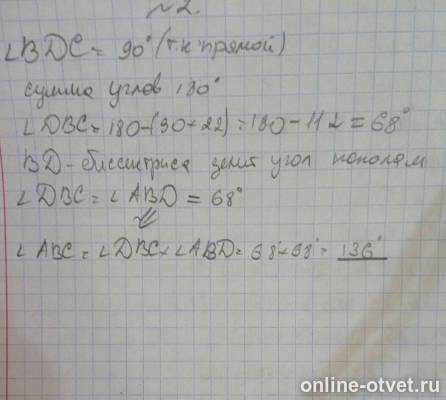 №2.
∠BDC = 90° (т.к прямой)
сумма углов 180°
∠DBC = 180-(90+22) = 180-112 = 68°
BD-биссектриса делит угол пополам
∠DBC = ∠ABD = 68°
∠ABC = ∠DBC+∠ABD = 68°+68° = 136°
online-otvet.ru